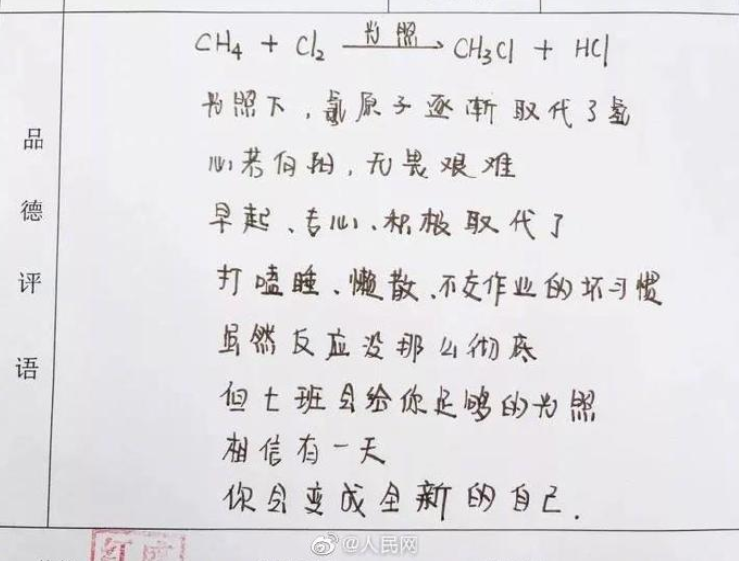 品德评语
CH4 + Cl2 光照→ CH3Cl + HCl
光照下，氯原子逐渐取代了氢
心若向阳，无畏艰难
早起、专心、积极取代了
打嗑睡、懒散、不交作业的坏习惯
虽然反应没那么彻底
但七班会给你足够的光照
相信有一天
你会变成全新的自己.
@人民网